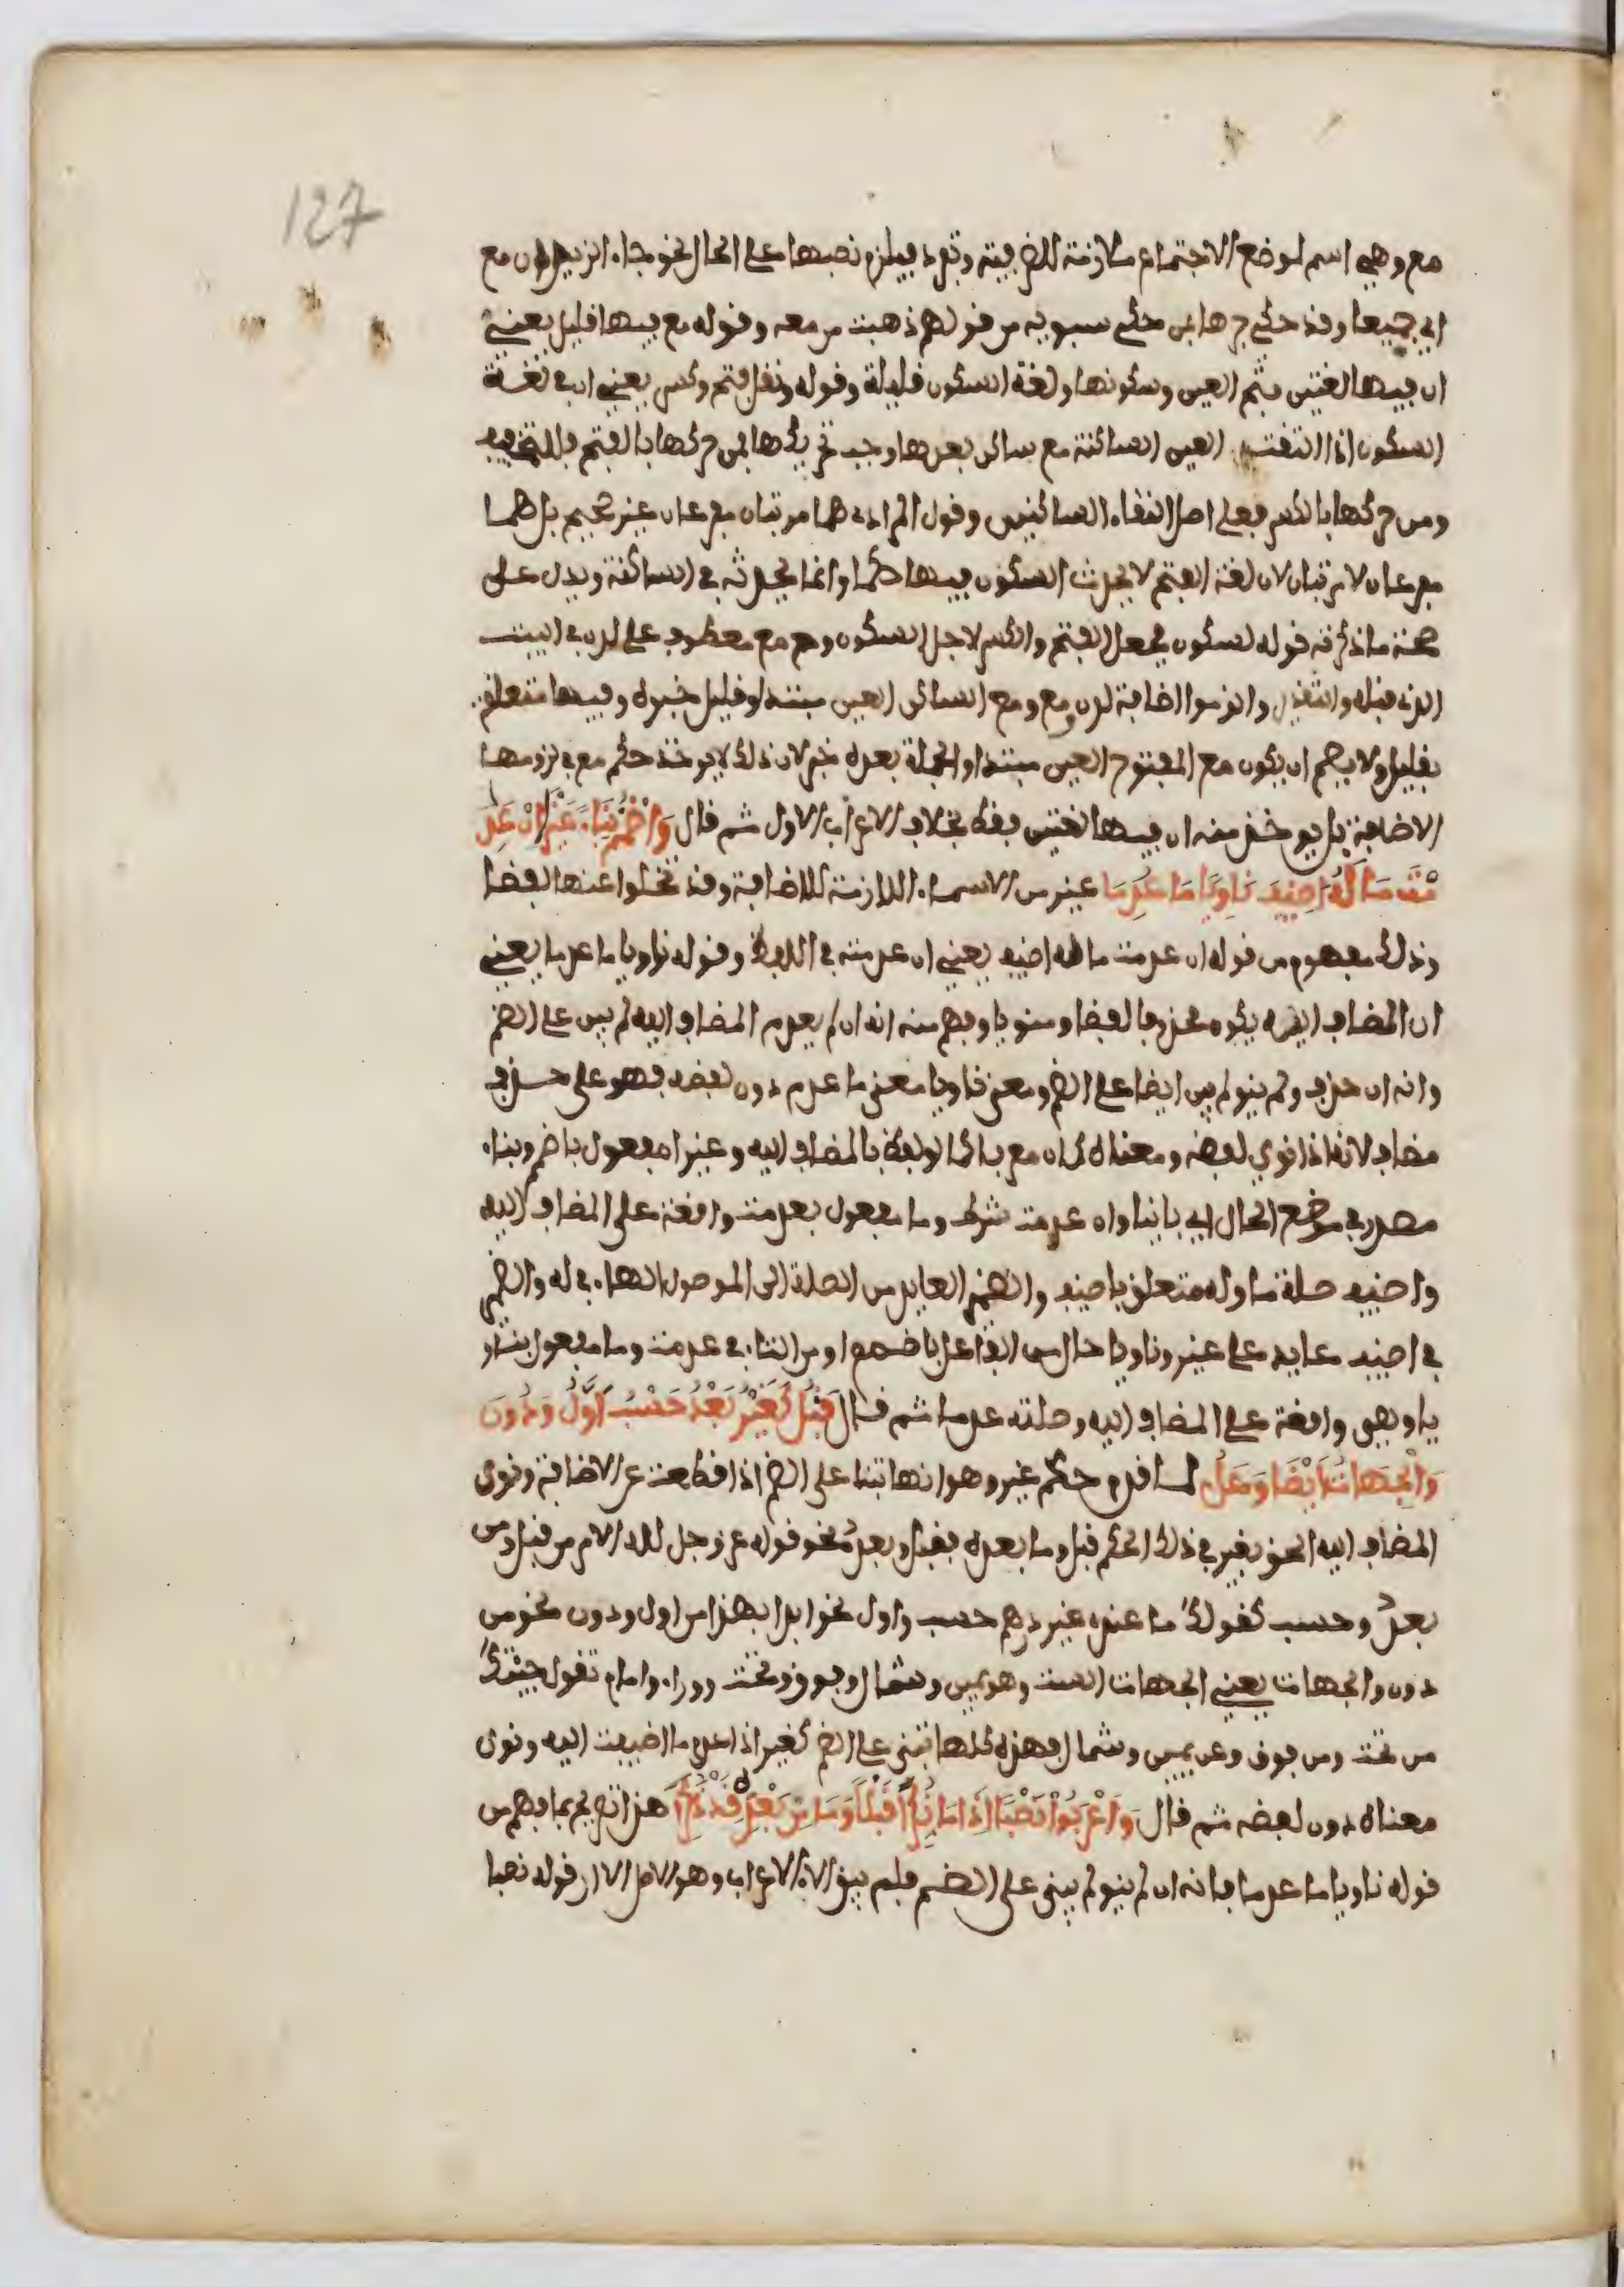 127
مع وهي اسم لموضع الاجتماع ملازمة للظرفية وتفرد فيلزم نصبها على الحال نحو جاء الزيدان مع
اي جميعا وقد حكي جرها بمن حكى سيبويه من قولهم ذهبت من معه وقوله مع فيها قليل يعني
ان فيها لغتين فتح العين وسكونها ولغة السكون قليلة وقوله ونقل فتح وكسر يعني ان في لغة
السكون اذا التقت العين الساكنة مع ساكن بعدها وجب تحريكها فمن حركها بالفتح فللتخفيف
ومن حركها بالكسر فعلى اصل التقاء الساكنين وقول المرادي هما مرتبان مفرعان غير صحيح بل هما
مفرعان لا مرتبان لان لغة الفتح لا يحدث السكون فيها حكما وانما يحدثه في الساكنة ويدل على
صحة ما ذكرته قوله لسكون فجعل الفتح والكسر لاجل السكون ومع مع معطوف على لدن في البيت
الذي قبله والتقدير والزموا اضافة لدن ومع ومع الساكن العين مبتدا وقليل خبره وفيها متعلق
بقليل ولا يصح ان يكون مع المفتوح العين مبتدا والجملة بعده خبر لان ذلك لا يوخذ حكم مع في لزومها
الاضافة بل يوخذ منه ان فيها لغتين فقط بخلاف الاعراب الاول ثم قال وَاضْمُمْ بِنَاءً غَيْرًا انْ عَدِ
مْتَ مَا لَهُ اُضِيفَ نَاوِيًا مَا عُدِمَا غير من الاسماء اللازمة للاضافة وقد تخلوا عنها لفظا
وذلك مفهوم من قوله ان عدمت ما له اضيف يعني ان عدمته في اللفظ وقوله ناويا ما عدما يعني
ان المضاف اليه يكون محذوفا لفظا ومنويا وفهم منه انه ان لم يعدم المضاف اليه لم يبن على الضم
وانه ان حذف ولم ينو لم يبن ايضا على الضم ومعنى ناويا معنى ما عدم دون لفظه فهو على حذف
مضاف لانه اذا نوي لفظه ومعناه كان معربا كما لو لفظ بالمضاف اليه وغيرا مفعول باضمم وبناء
مصدر في موضع الحال اي بانيا وان عدمت شرط وما مفعول بعدمت واقعة على المضاف اليه
واضيف صلة ما وله متعلق باضيف والضمير العايد من الصلة الى الموصول الهاء في له والضمير
في اضيف عايد على غير وناويا حال من الفاعل باضمم او من التاء في عدمت وما مفعول بناو
يا وهي واقعة على المضاف اليه وصلته عدما ثم قال قَبْلُ كَغَيْرُ بَعْدُ حَسْبُ اَوَّلُ وَدُونَ
وَالجِهَاتُ اَيْضًا وَعَلُ لما قدم حكم غير وهو انها تبنا على الضم اذا قطعت عن الاضافة ونوى
المضاف اليه الحق بغير في ذلك الحكم قبل وما بعده فقبل وبعد نحو قوله عز وجل لله الامر من قبل ومن
بعدُ وحسب كقولك ما عندي غير درهم حسب واول نحو ابدا بهذا من اول ودون نحو من
دون والجهات يعني الجهات الست وهو يمين وشمال وفوق وتحت ووراء وامام تقول جيتك
من تحت ومن فوق وعن يمين وشمال فهذه كلها تبنى على الضم كغير اذا عدم ما اضيفت اليه ونوى
معناه دون لفظه ثم قال وَاَعْرَبُوا نَصْبًا اِذَا مَا نُكِّرَا قَبْلًا وَمَا مِنْ بَعْدِهِ قَدْ ذُكِرَا هذا تصريح بما فهم من
قوله ناويا ما عدما فانه ان لم ينو لم يبنى على الضم فلم يبق الا الاعراب وهو الاصل الا ان قوله نصبا